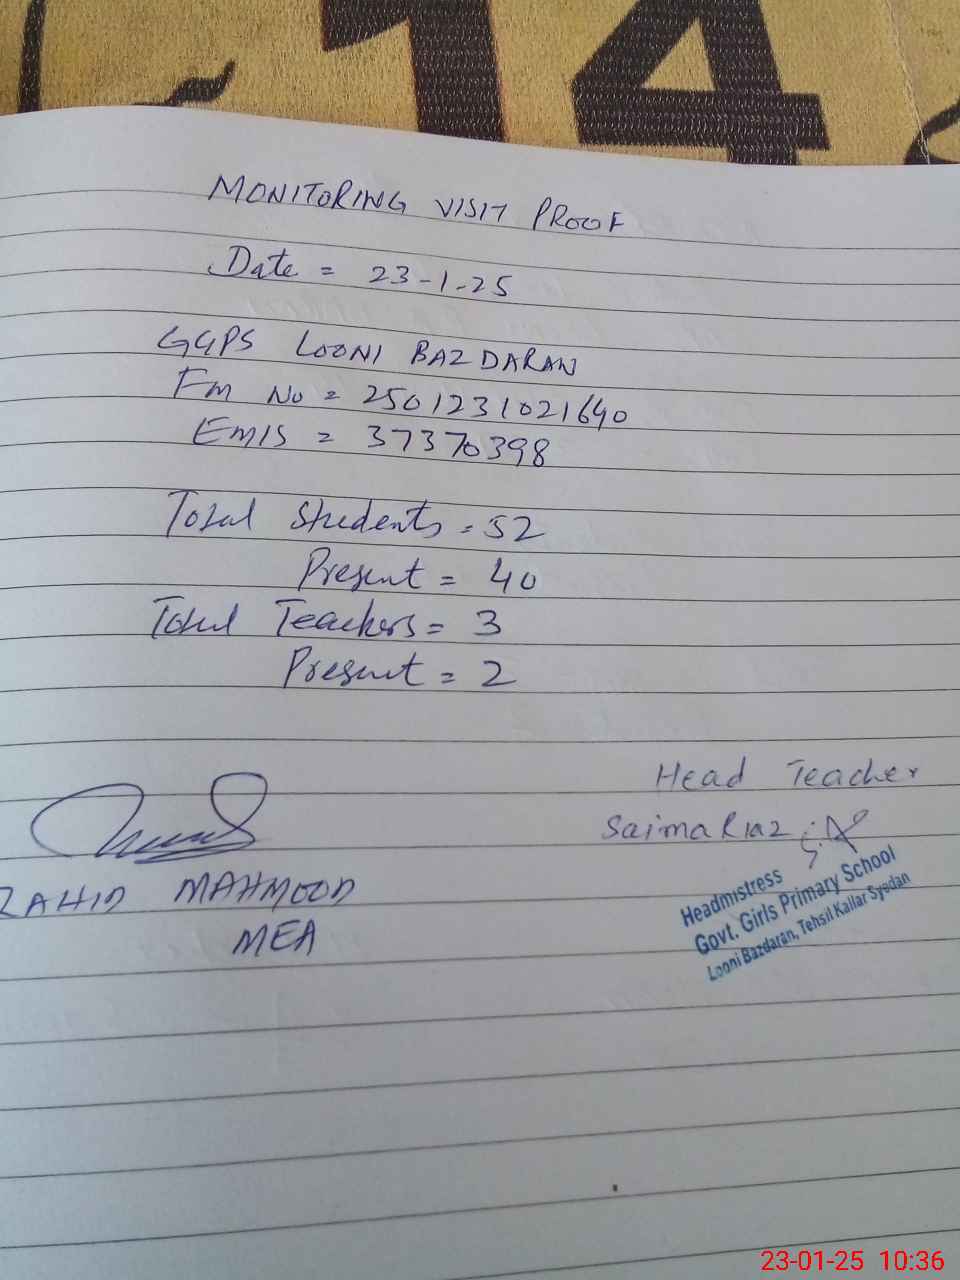 14
MONITORING VISIT PROOF
Date = 23-1-25
GGPS LOONI BAZDARAN
Fm No = 2501231021640
EMIS = 37370398
Total Students = 52
Present = 40
Total Teachers = 3
Present = 2
Head Teacher
Saima Riaz
ZAHID MAHMOOD
MEA
Headmistress
Govt. Girls Primary School
Looni Bazdaran, Tehsil Kallar Syedan
23-01-25 10:36